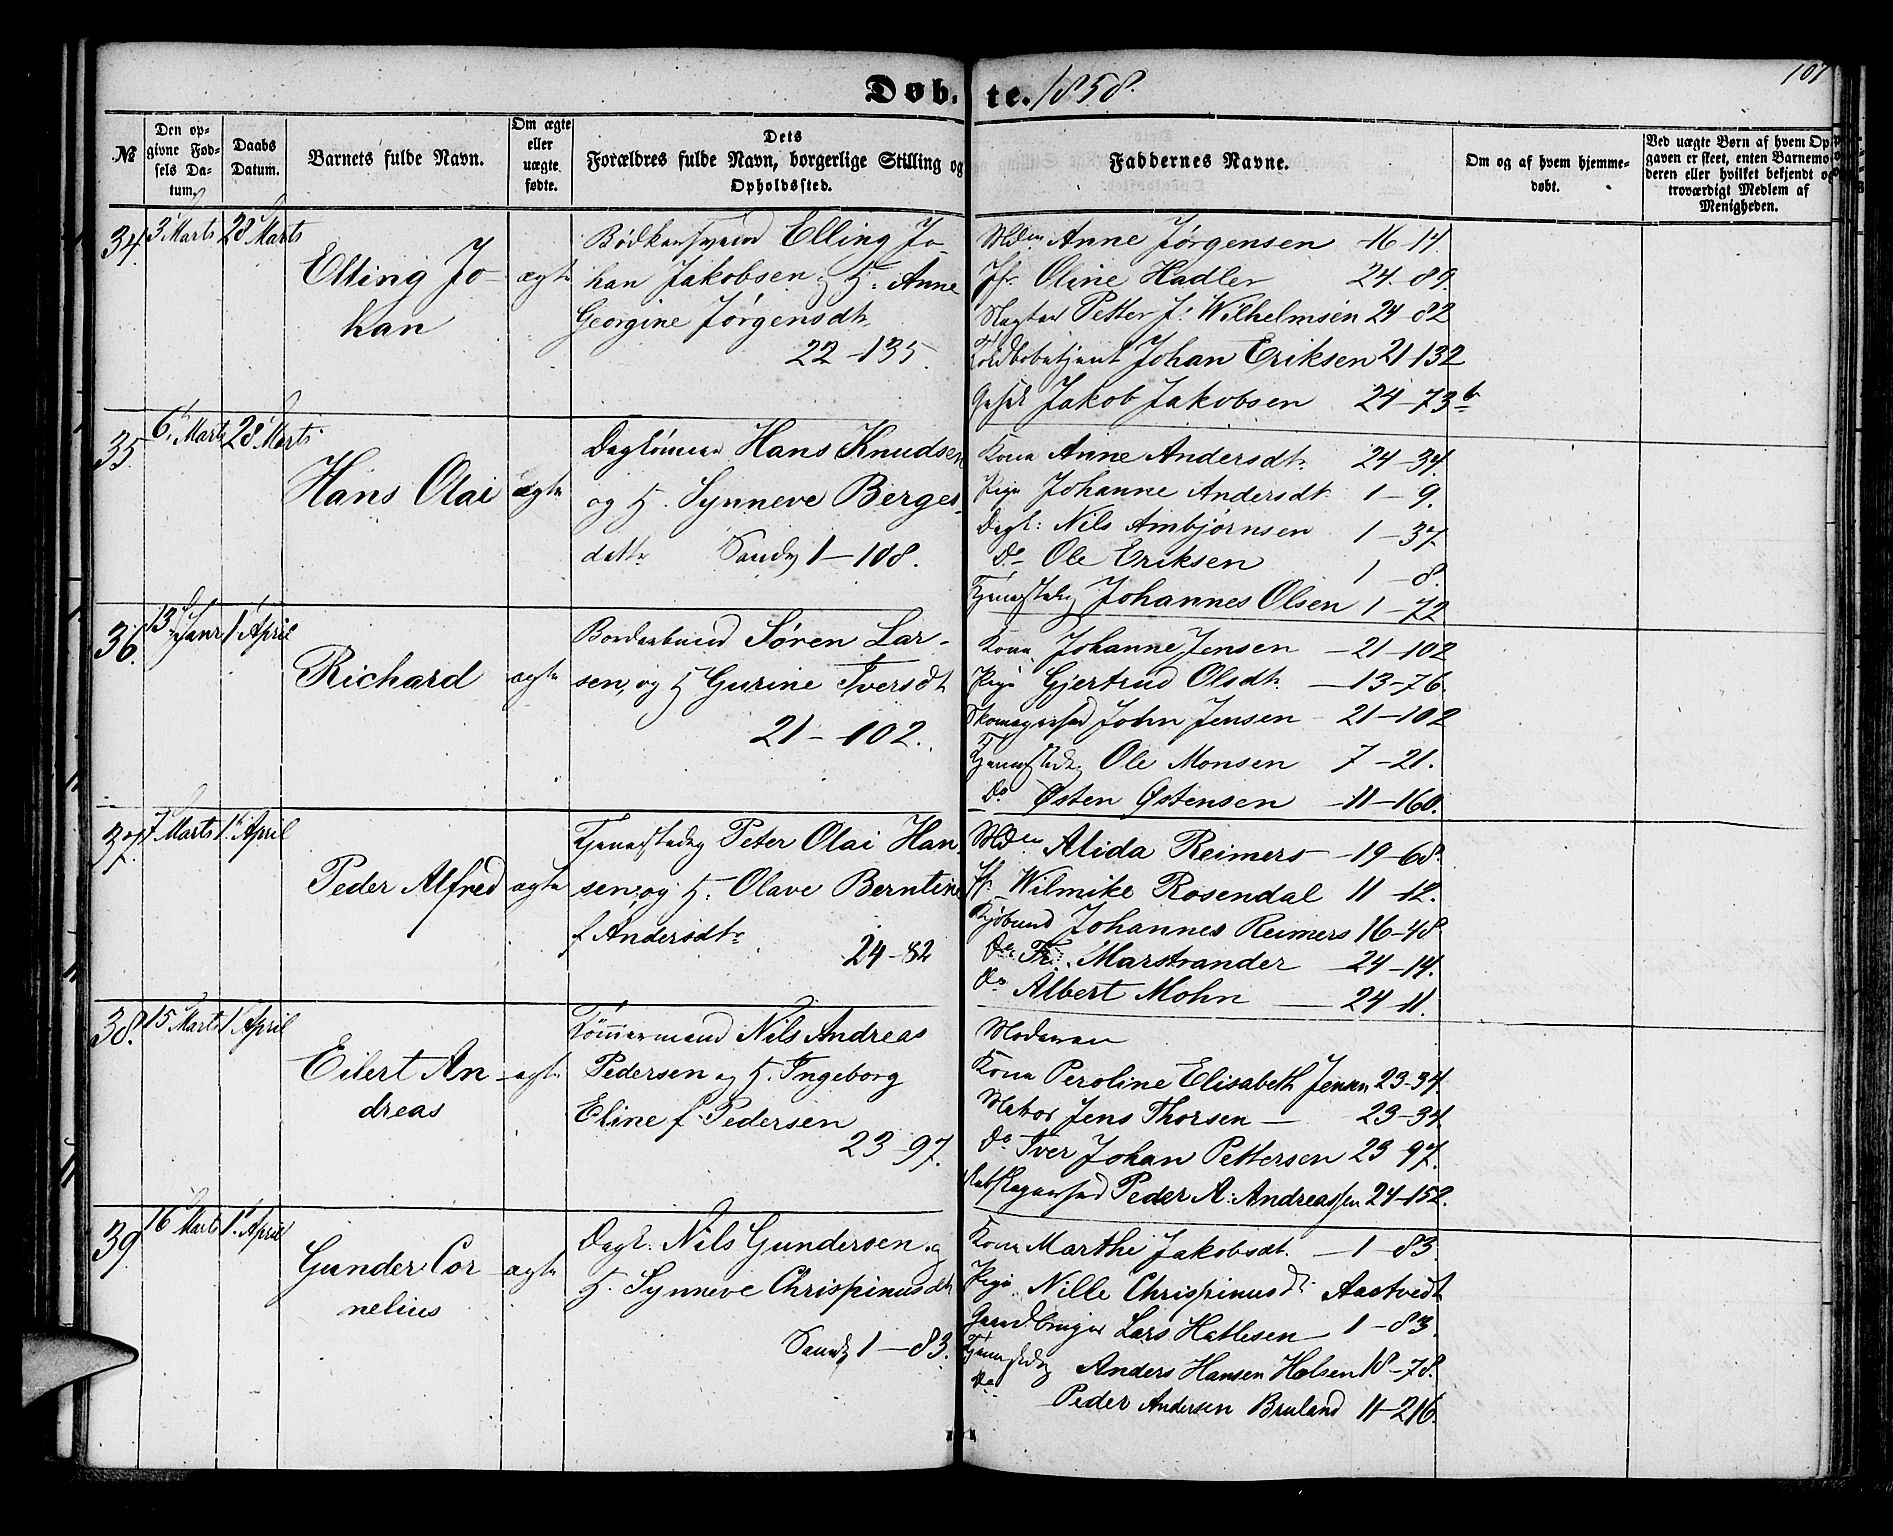 107
Døb. te. 1858.
№
Den op-
givne Fød-
sels Da-
tum.
Daabs
Datum.
Barnets fulde Navn.
Om ægte
eller
uægte
fødte.
Dets
Forældres fulde Navn, borgerlige Stilling og
Opholdssted.
Faddernes Navne.
Om og af hvem hjemme-
døbt.
Ved uægte Børn af hvem Op
gaven er skeet, enten Barnemo
deren eller hvilket bekjendt og
troværdigt Medlem af
Menigheden.
34. 3 Marts 28 Marts
Elling Jo-
han
ægte
Elling Jo-
han Jakobsen og H: Anne
Georgine Jørgensdtr
22-135.
Mdm Anne Jørgensen 16-14
Jfr. Oline Hadler 24-89.
Petter J: Wilhelmsen 24-82
Johan Eriksen 21-132
Jakob Jakobsen 24-73 b
35. 6 Marts 28 Marts
Hans Olai
ægte
Hans Knudsen
og H. Synneve Berges-
datter Sandv 1-108.
Kone Anne Andersdtr 24-34.
Pige Johanne Andersdt 1-9.
Dagl: Nils Ambjørnsen 1-37
Do Ole Eriksen 1-8.
Johannes Olsen 1-72
36. 13 Janr 1 April
Richard
ægte
Søren Lar-
sen, og H Gurine Iversdt
21-102.
Kone Johanne Jensen -21-102
Pige Gjertrud Olsdt. -13-76.
John Jensen -21-102
Ole Monsen 7-21.
Do Østen Østensen -11-160.
37. 7 Marts 1 April
Peder Alfred
ægte
Peter Olai Han-
sen, og H: Olave Berntine
f Andersdtr 24-82
Mdm Alida Reimers -19-68.
Jfr. Wilmike Rosendal 11-12.
Johannes Reimers 16-48
Do Fr. Marstrander -24-14.
Do Albert Mohn -24-11.
38. 15 Marts 1 April
Eilert An
dreas
ægte
Tømmermand Nils Andreas
Pedersen og H. Ingeborg
Eline f. Pedersen
23-97.
Moderen
Kone Peroline Elisabeth Jensen 23-34.
Jens Thorsen - 23-34
Do Iver Johan Pettersen 23-97.
Peder A: Andreassen 24-152.
39 16 Marts 1 April
Gunder Cor
nelius
ægte
Dagl: Nils Gundersen og
H. Synneve Chrispinusdtr
Sandv 1-83.
Kone Marthe Jakobsdt. -1-83
Pige Nille Chrispinusdt Aastvedt
Lars Hatlesen 1-83.
Anders Hansen Holsen 18-78.
Do Peder Andersen Bruland 11-216.